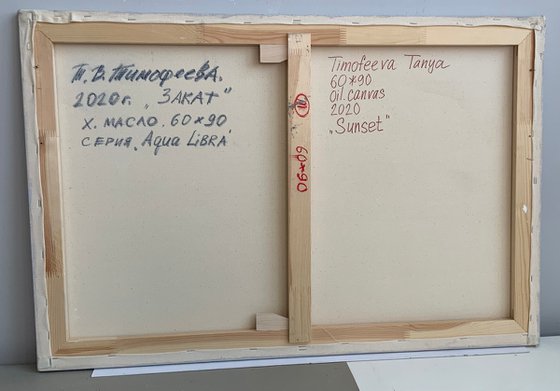 Т. В. Тимофеева.
2020г. „ЗАКАТ“
Х. МАСЛО. 60×90
СЕРИЯ „Aqua LiBRA“
60×90
Timofeeva Tanya
60*90
Oil. Canvas
2020
„Sunset“